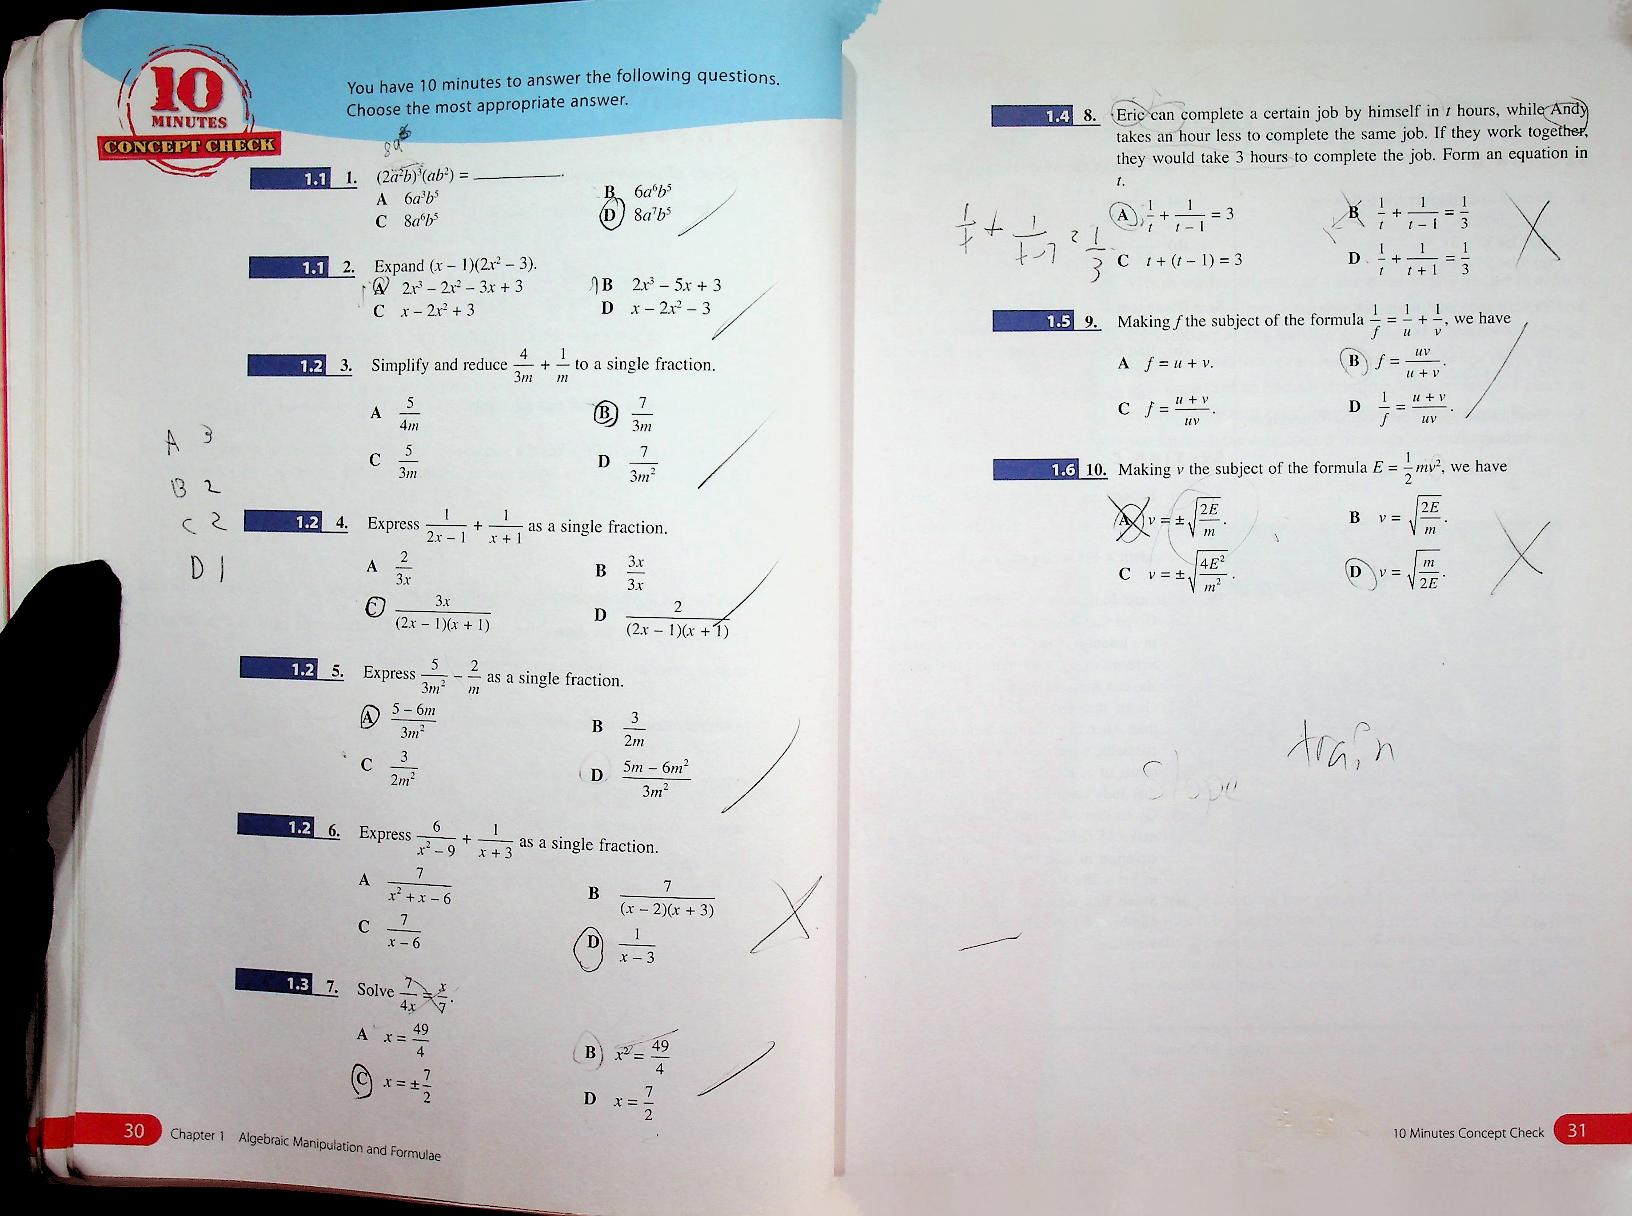 10
MINUTES
CONCEPT CHECK
You have 10 minutes to answer the following questions.
Choose the most appropriate answer.
1.1 1. (2a²b)³(ab²) = ________.
A 6a³b⁵ B 6a⁶b⁵
C 8a⁶b⁵ D 8a⁷b⁵
1.1 2. Expand (x – 1)(2x² – 3).
A 2x³ – 2x² – 3x + 3 B 2x³ – 5x + 3
C x – 2x² + 3 D x – 2x² – 3
1.2 3. Simplify and reduce 4/3m + 1/m to a single fraction.
A 5/4m B 7/3m
C 5/3m D 7/3m²
A 3
B 2
C 2
D 1
1.2 4. Express 1/(2x – 1) + 1/(x + 1) as a single fraction.
A 2/3x B 3x/3x
C 3x/((2x – 1)(x + 1)) D 2/((2x – 1)(x + 1))
1.2 5. Express 5/3m² – 2/m as a single fraction.
A (5 – 6m)/3m² B 3/2m
C 3/2m² D (5m – 6m²)/3m²
1.2 6. Express 6/(x² – 9) + 1/(x + 3) as a single fraction.
A 7/(x² + x – 6) B 7/((x – 2)(x + 3))
C 7/(x – 6) D 1/(x – 3)
1.3 7. Solve 7/4x = x/7.
A x = 49/4 B x² = 49/4
C x = ± 7/2 D x = 7/2
30 Chapter 1 Algebraic Manipulation and Formulae
1.4 8. Eric can complete a certain job by himself in t hours, while Andy
takes an hour less to complete the same job. If they work together,
they would take 3 hours to complete the job. Form an equation in
t.
A 1/t + 1/(t – 1) = 3 B 1/t + 1/(t – 1) = 1/3
C t + (t – 1) = 3 D 1/t + 1/(t + 1) = 1/3
1.5 9. Making f the subject of the formula 1/f = 1/u + 1/v, we have
A f = u + v. B f = uv/(u + v).
C f = (u + v)/uv. D 1/f = (u + v)/uv.
1.6 10. Making v the subject of the formula E = 1/2 mv², we have
A v = ± √(2E/m). B v = √(2E/m).
C v = ± √(4E²/m²). D v = √(m/2E).
train
Slope
10 Minutes Concept Check 31